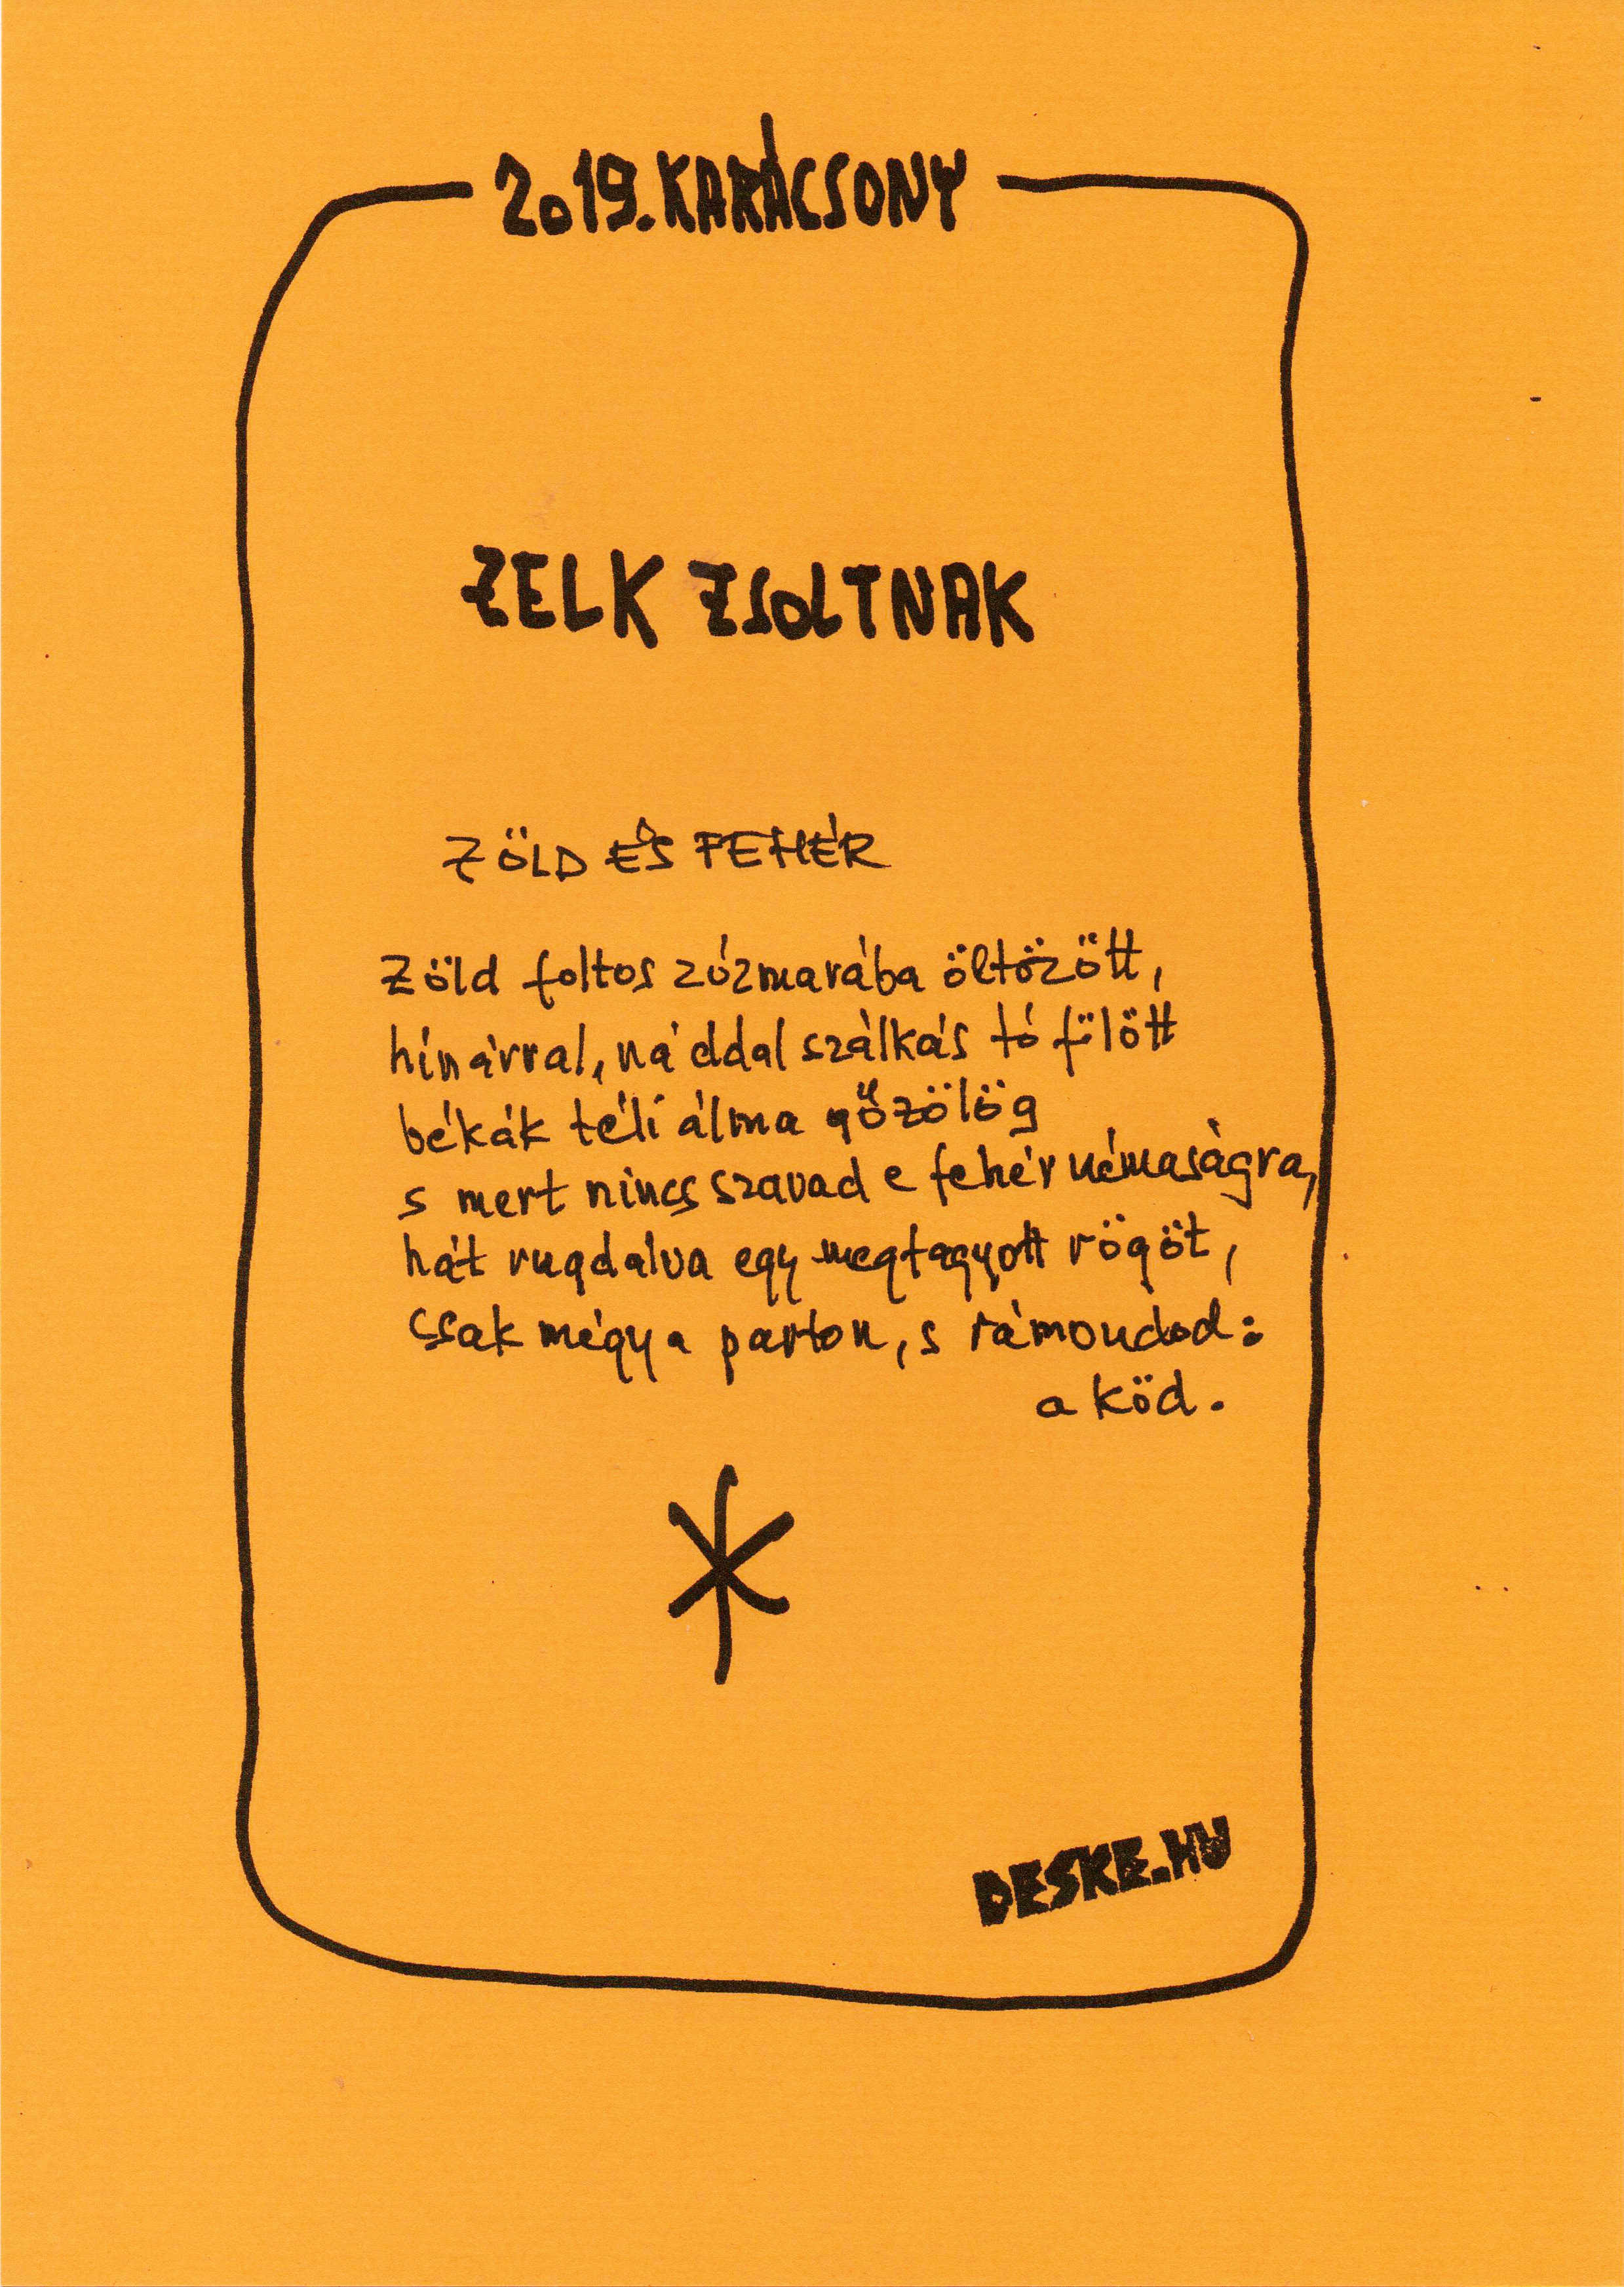 2019. KARÁCSONY
ZELK ZSOLTNAK
ZÖLD ÉS FEHÉR
Zöld foltos zúzmarába öltözött,
hínárral, náddal szálkás tó fölött
békák téli álma gőzölög
s mert nincs szavad e fehér némaságra,
hát rugdalva egy megfagyott rögöt,
csak mégy a parton, s rámondod:
a köd.
DESKE.HU